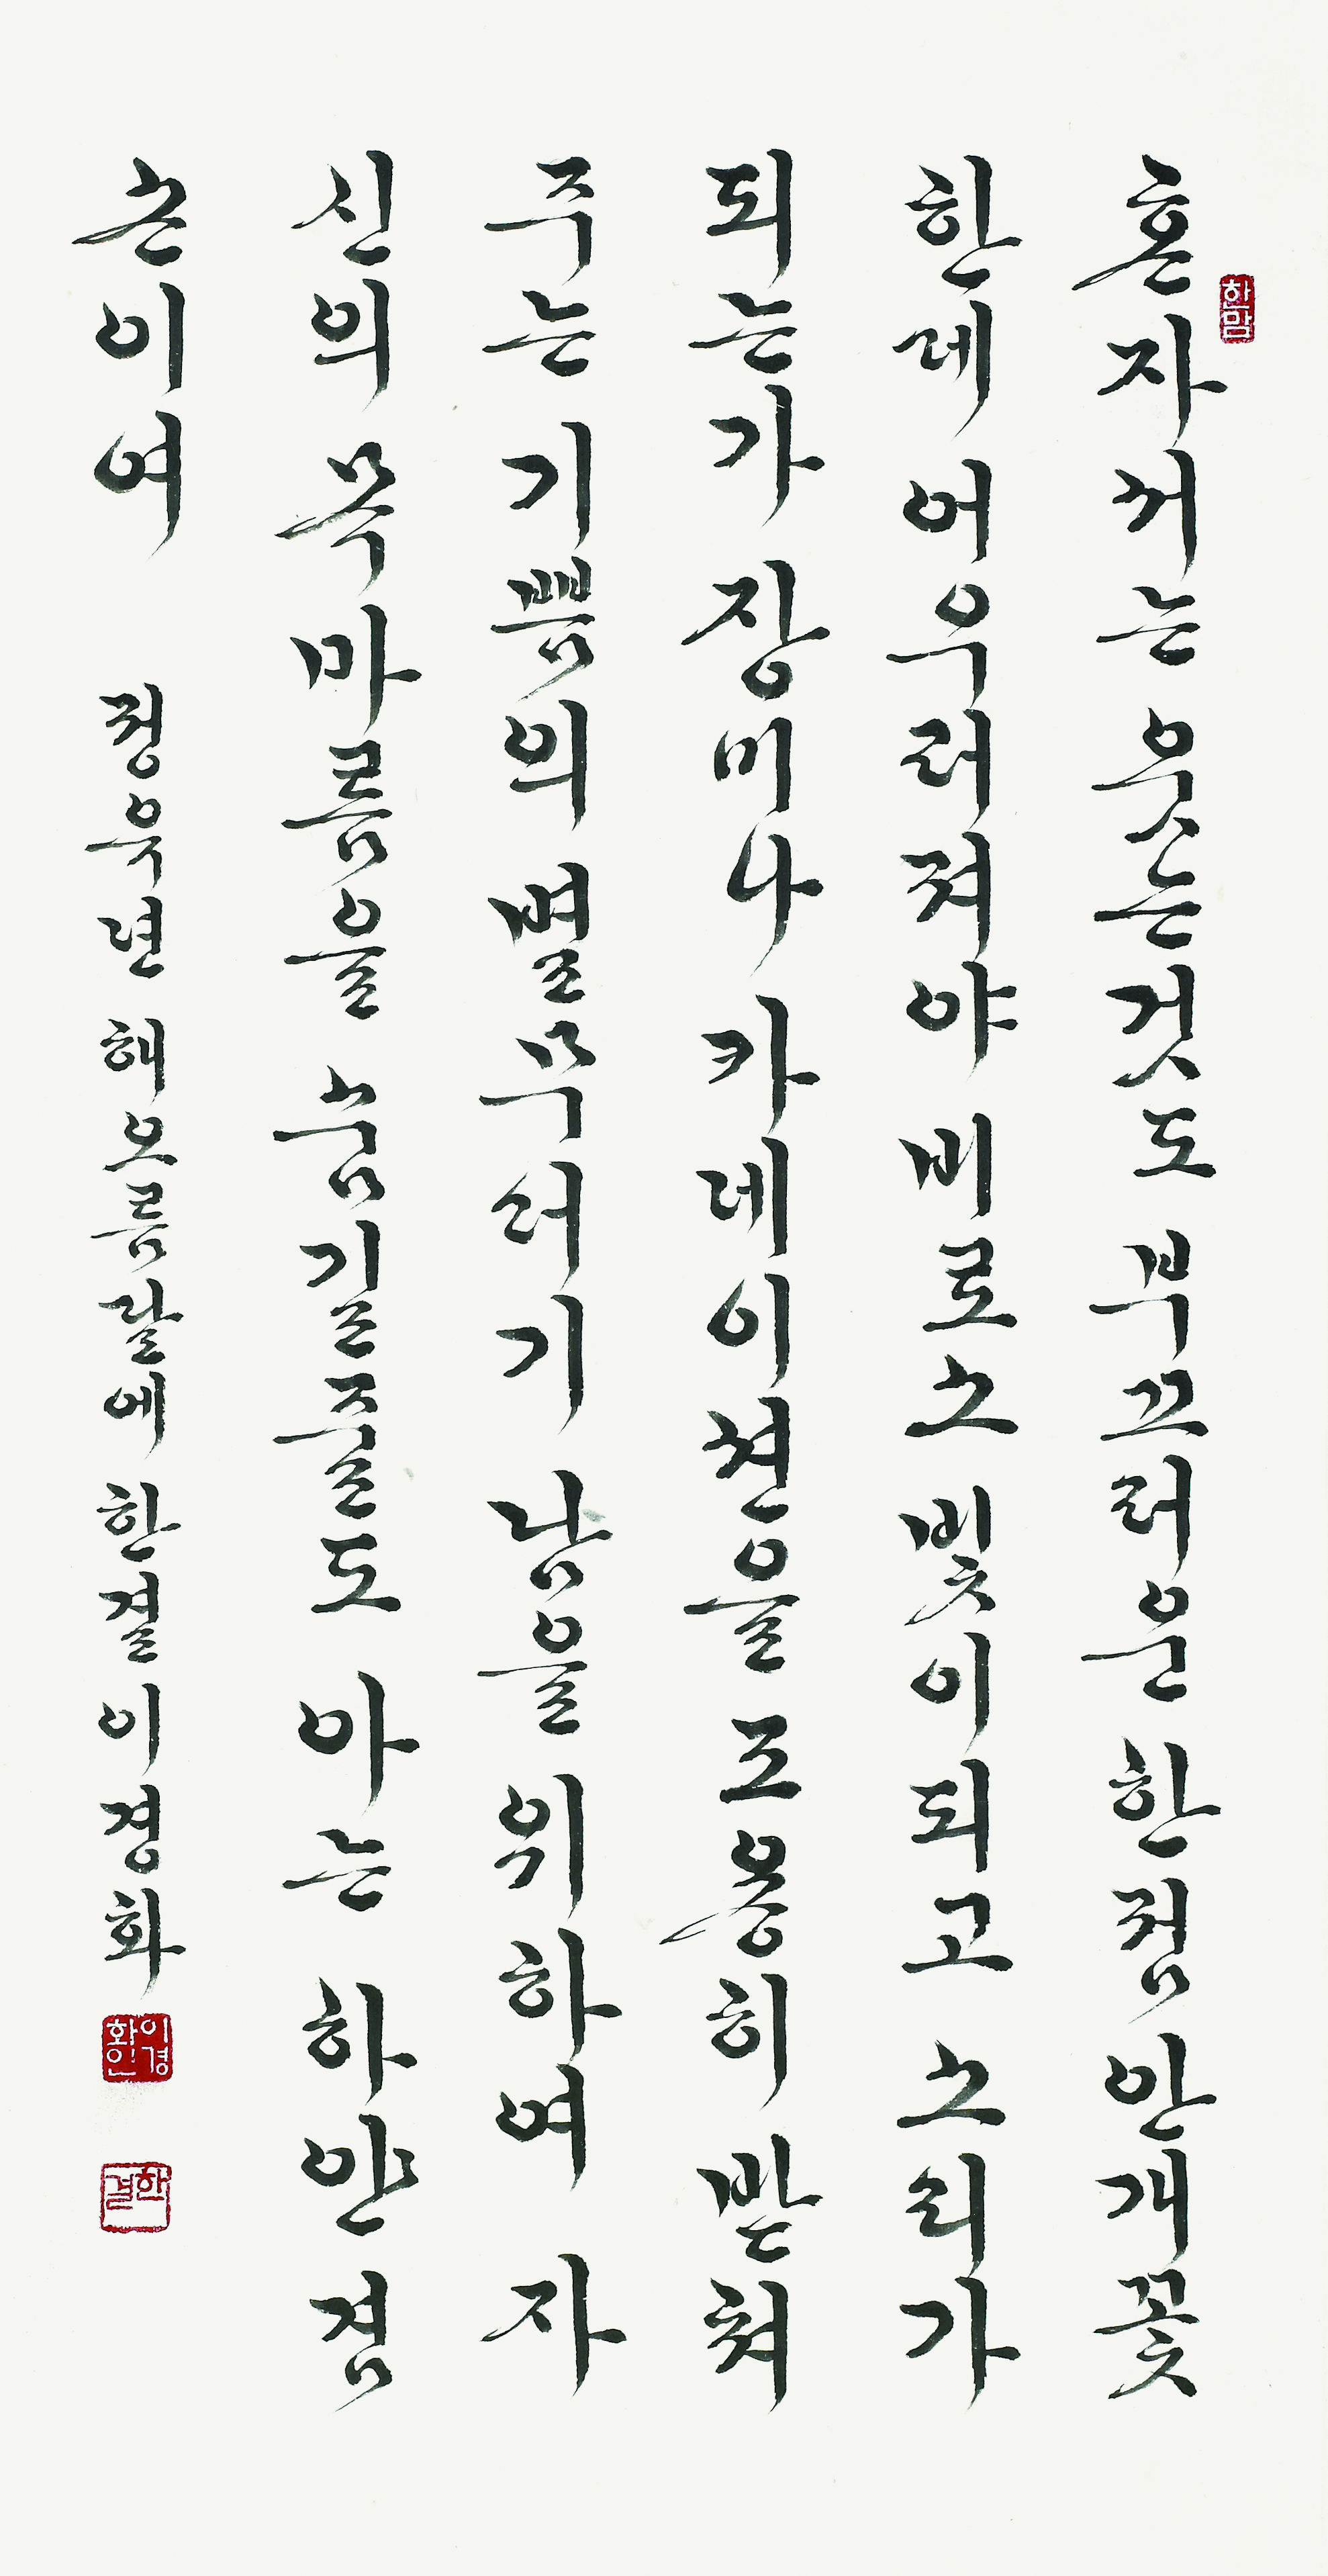 한맘
혼자서는 웃는것도 부끄러운 한점 안개꽃
한데 어우러져야 비로소 빛이되고 소리가
되는가 장미나 카네이션을 조용히 받쳐
주는 기쁨의 별무더기 남을 위하여 자
신의 목마름을 숨길줄도 아는 하얀 겸
손이여 정유년 해오름달에 한결 이경화
이경화인
한결